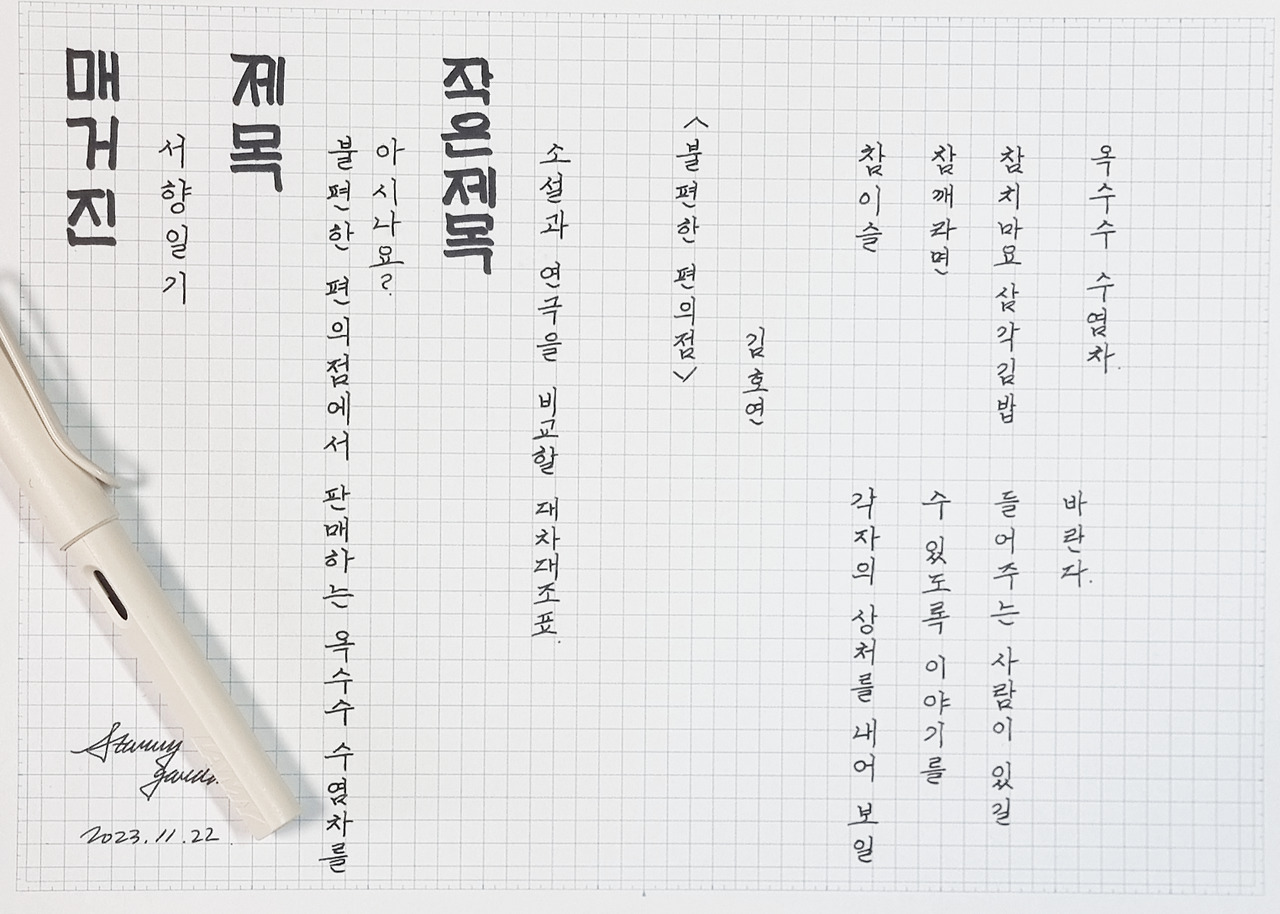 매거진
서향일기
제목
불편한 편의점에서 판매하는 옥수수 수염차를
아시나요?
작은제목
소설과 연극을 비교할 대차대조표.
<불편한 편의점>
김호연
참이슬
참깨라면
참치마요 삼각김밥
옥수수 수염차.
각자의 상처를 내어 보일
수 있도록 이야기를
들어주는 사람이 있길
바란다.
2023.11.22.